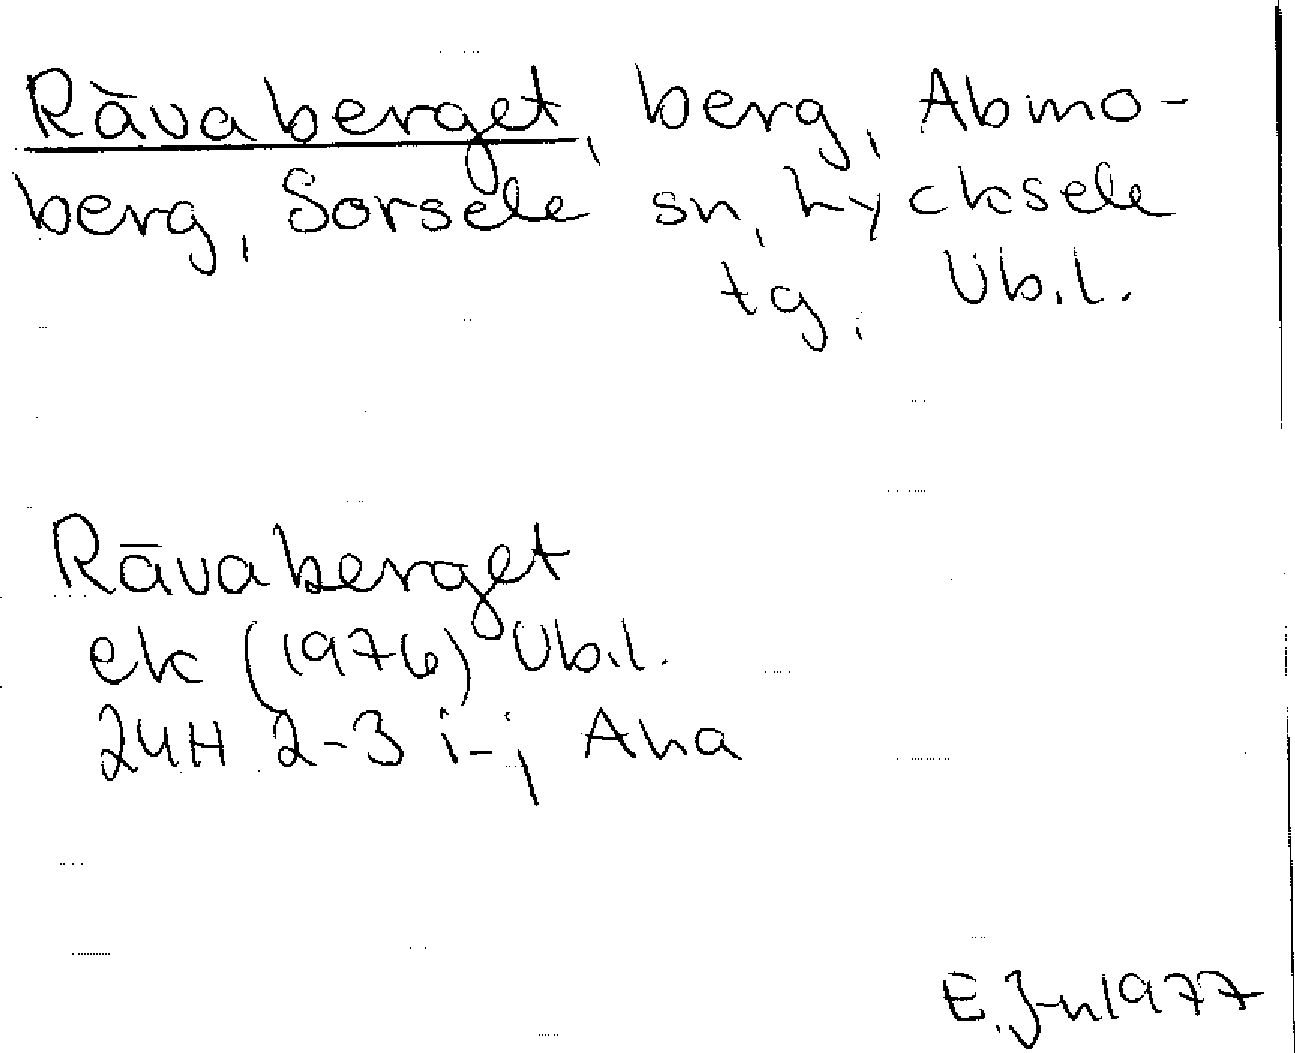 Rävaberget, berg, Abmo-
berg, Sorsele sn, Lycksele
tg, Vb.l.
Rävaberget
ek (1976) Vb.l.
24H 2-3 i-j Aha
E. J-n 1977